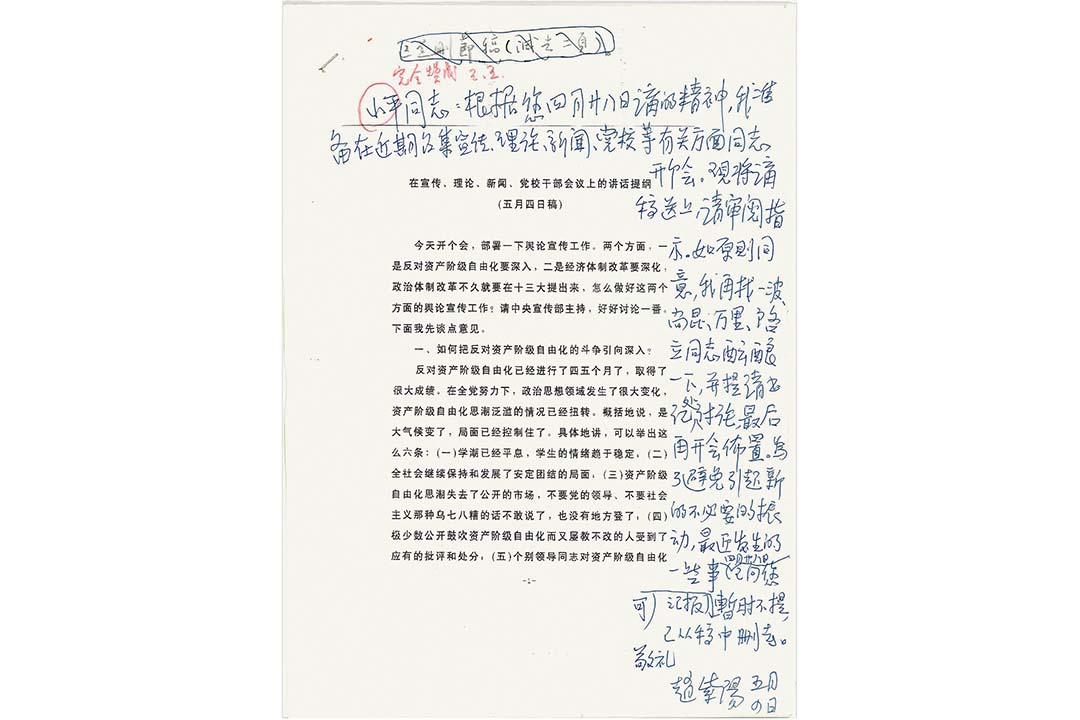 这是删节稿(减去二页)。
完全赞成 五.五.
小平同志:根据您四月廿八日讲的精神,我准
备在近期召集宣传、理论、新闻、党校等有关方面同志
开个会。现将讲
稿送上,请审阅指
示。如原则同
意,我再找一波、
尚昆、万里、启
立同志酝酿
一下,并提请书
记处讨论,最后
再开会佈置。为
了避免引起新
的不必要的振
动,最近发生的
一些事(四月廿八日已向您
汇报)暂时不提,
可)
已从稿中删去。
敬礼
赵紫陽 五月
四日
在宣传、理论、新闻、党校干部会议上的讲话提纲
(五月四日稿)
今天开个会,部署一下舆论宣传工作。两个方面,一
是反对资产阶级自由化要深入,二是经济体制改革要深化,
政治体制改革不久就要在十三大提出来,怎么做好这两个
方面的舆论宣传工作?请中央宣传部主持,好好讨论一番。
下面我先谈点意见。
一、如何把反对资产阶级自由化的斗争引向深入?
反对资产阶级自由化已经进行了四五个月了,取得了
很大成绩。在全党努力下,政治思想领域发生了很大变化,
资产阶级自由化思潮泛滥的情况已经扭转。概括地说,是
大气候变了,局面已经控制住了。具体地讲,可以举出这
么六条:(一)学潮已经平息,学生的情绪趋于稳定,(二)
全社会继续保持和发展了安定团结的局面,(三)资产阶级
自由化思潮失去了公开的市场,不要党的领导、不要社会
主义那种乌七八糟的话不敢说了,也没有地方登了,(四)
极少数公开鼓吹资产阶级自由化而又屡教不改的人受到了
应有的批评和处分,(五)个别领导同志对资产阶级自由化
-1-